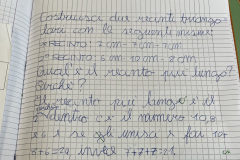 Costruisci due recinti triango
lari con le seguenti misure:
RECINTO: 7 cm - 7 cm - 7 cm
RECINTO: 6 cm 10 cm - 8 cm
Qual è il recinto più lungo?
Perché?
Il recinto più lungo è il
dentro c'è il numero 10,8
e 6 e se gli unisci fai 10+
8+6=24 invece 7+7+7=21